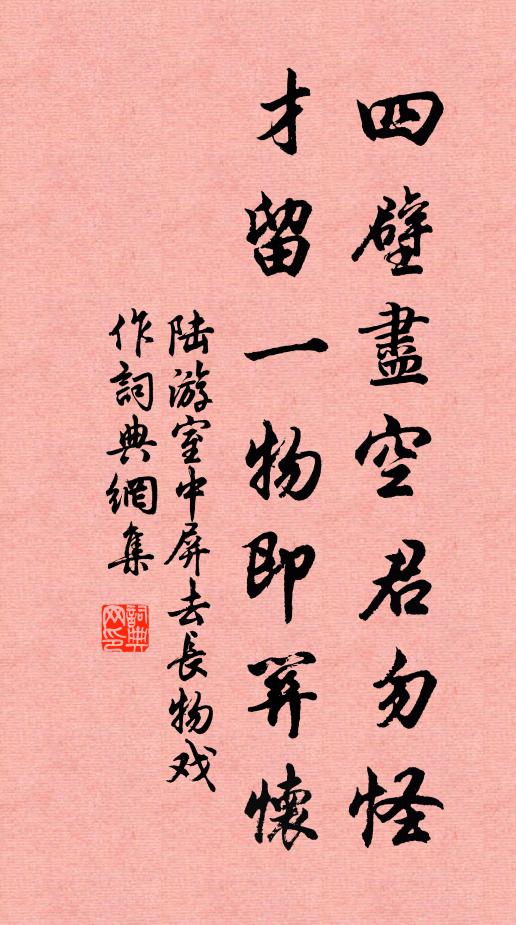 四壁盡空君勿怪
才留一物即關懷
陆游室中屏去長物戏
作詞典網集
詞典网印